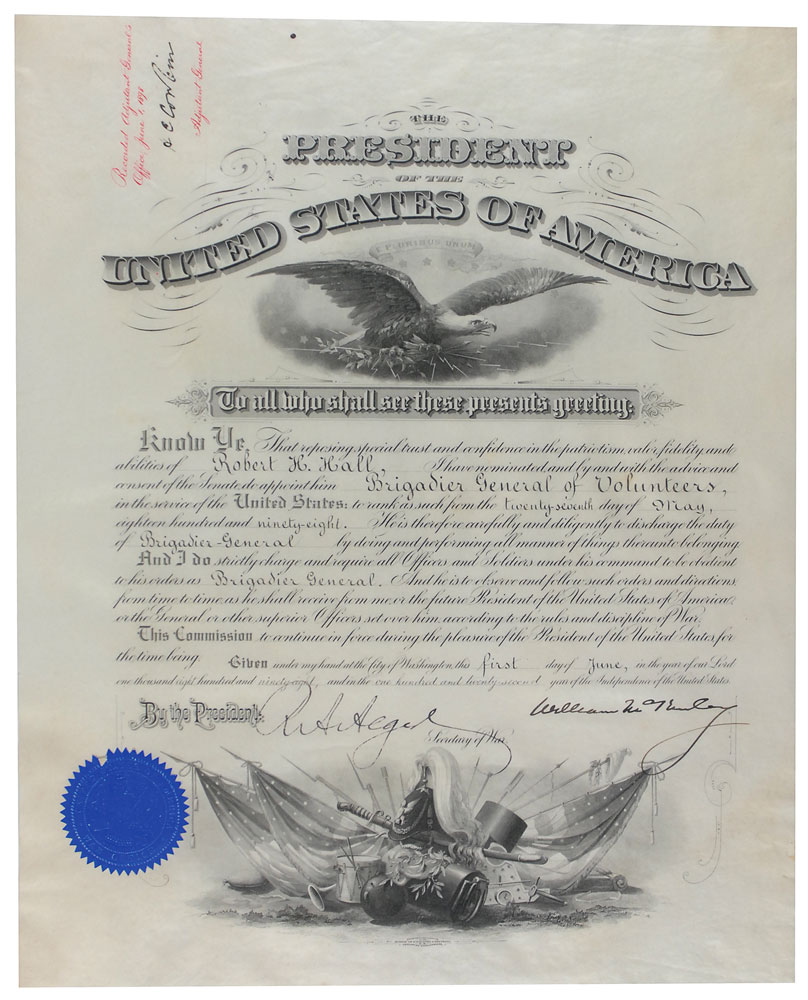 Recorded Adjutant General's
Office, June 1, 1898
H C Corbin
Adjutant General
THE
PRESIDENT
OF THE
UNITED STATES OF AMERICA
E PLURIBUS UNUM
To all who shall see these presents greeting:
Know Ye, That reposing special trust and confidence in the patriotism, valor, fidelity and
abilities of Robert H. Hall, I have nominated, and by and with the advice and
consent of the Senate do appoint him Brigadier General of Volunteers,
in the service of the United States: to rank as such from the twenty-seventh day of May,
eighteen hundred and ninety-eight. He is therefore carefully and diligently to discharge the duty
of Brigadier-General by doing and performing all manner of things thereunto belonging.
And I do strictly charge and require all Officers and Soldiers under his command to be obedient
to his orders as Brigadier General. And he is to observe and follow such orders and directions,
from time to time, as he shall receive from me, or the future President of the United States of America,
or the General or other superior Officers set over him, according to the rules and discipline of War.
This Commission to continue in force during the pleasure of the President of the United States for
the time being. Given under my hand at the City of Washington, this first day of June, in the year of our Lord
one thousand eight hundred and ninety-eight, and in the one hundred and twenty-second year of the Independence of the United States.
By the President: R A Alger William McKinley
Secretary of War